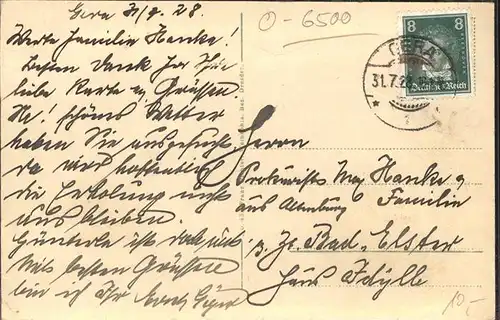 Gera 31/7. 28.
Werte Familie Hanke!
Besten Dank für Ihre
liebe Karte u. Grüssen.
Ha! schönes Wetter
haben Sie ausgesucht,
da wird hoffentlich
die Erholung nicht
ausbleiben.
Mit besten Grüssen
bin ich Ihr
O-6500
8 8
Deutsches Reich
GERA
31.7.28
* 1
Herrn
Prokurist Max Hanke u.
aus Altenburg Familie
z. Zt. Bad-Elster
Haus Idylle
10,-